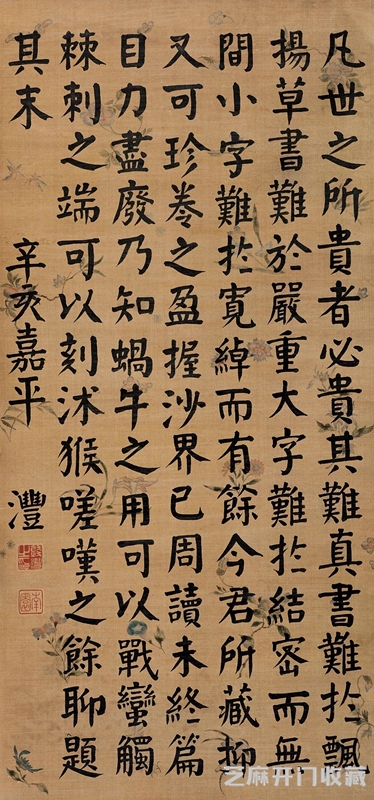 凡世之所貴者必貴其難真書難扵飄
揚草書難於嚴重大字難扵結密而無
間小字難扵寬綽而有餘今君所藏抑
又可珍卷之盈握沙界已周讀未終篇
目力盡廢乃知蝸牛之用可以戰蠻觸
棘刺之端可以刻沭猴嗟嘆之餘聊題
其末 辛亥嘉平 灃
芝麻开门收藏